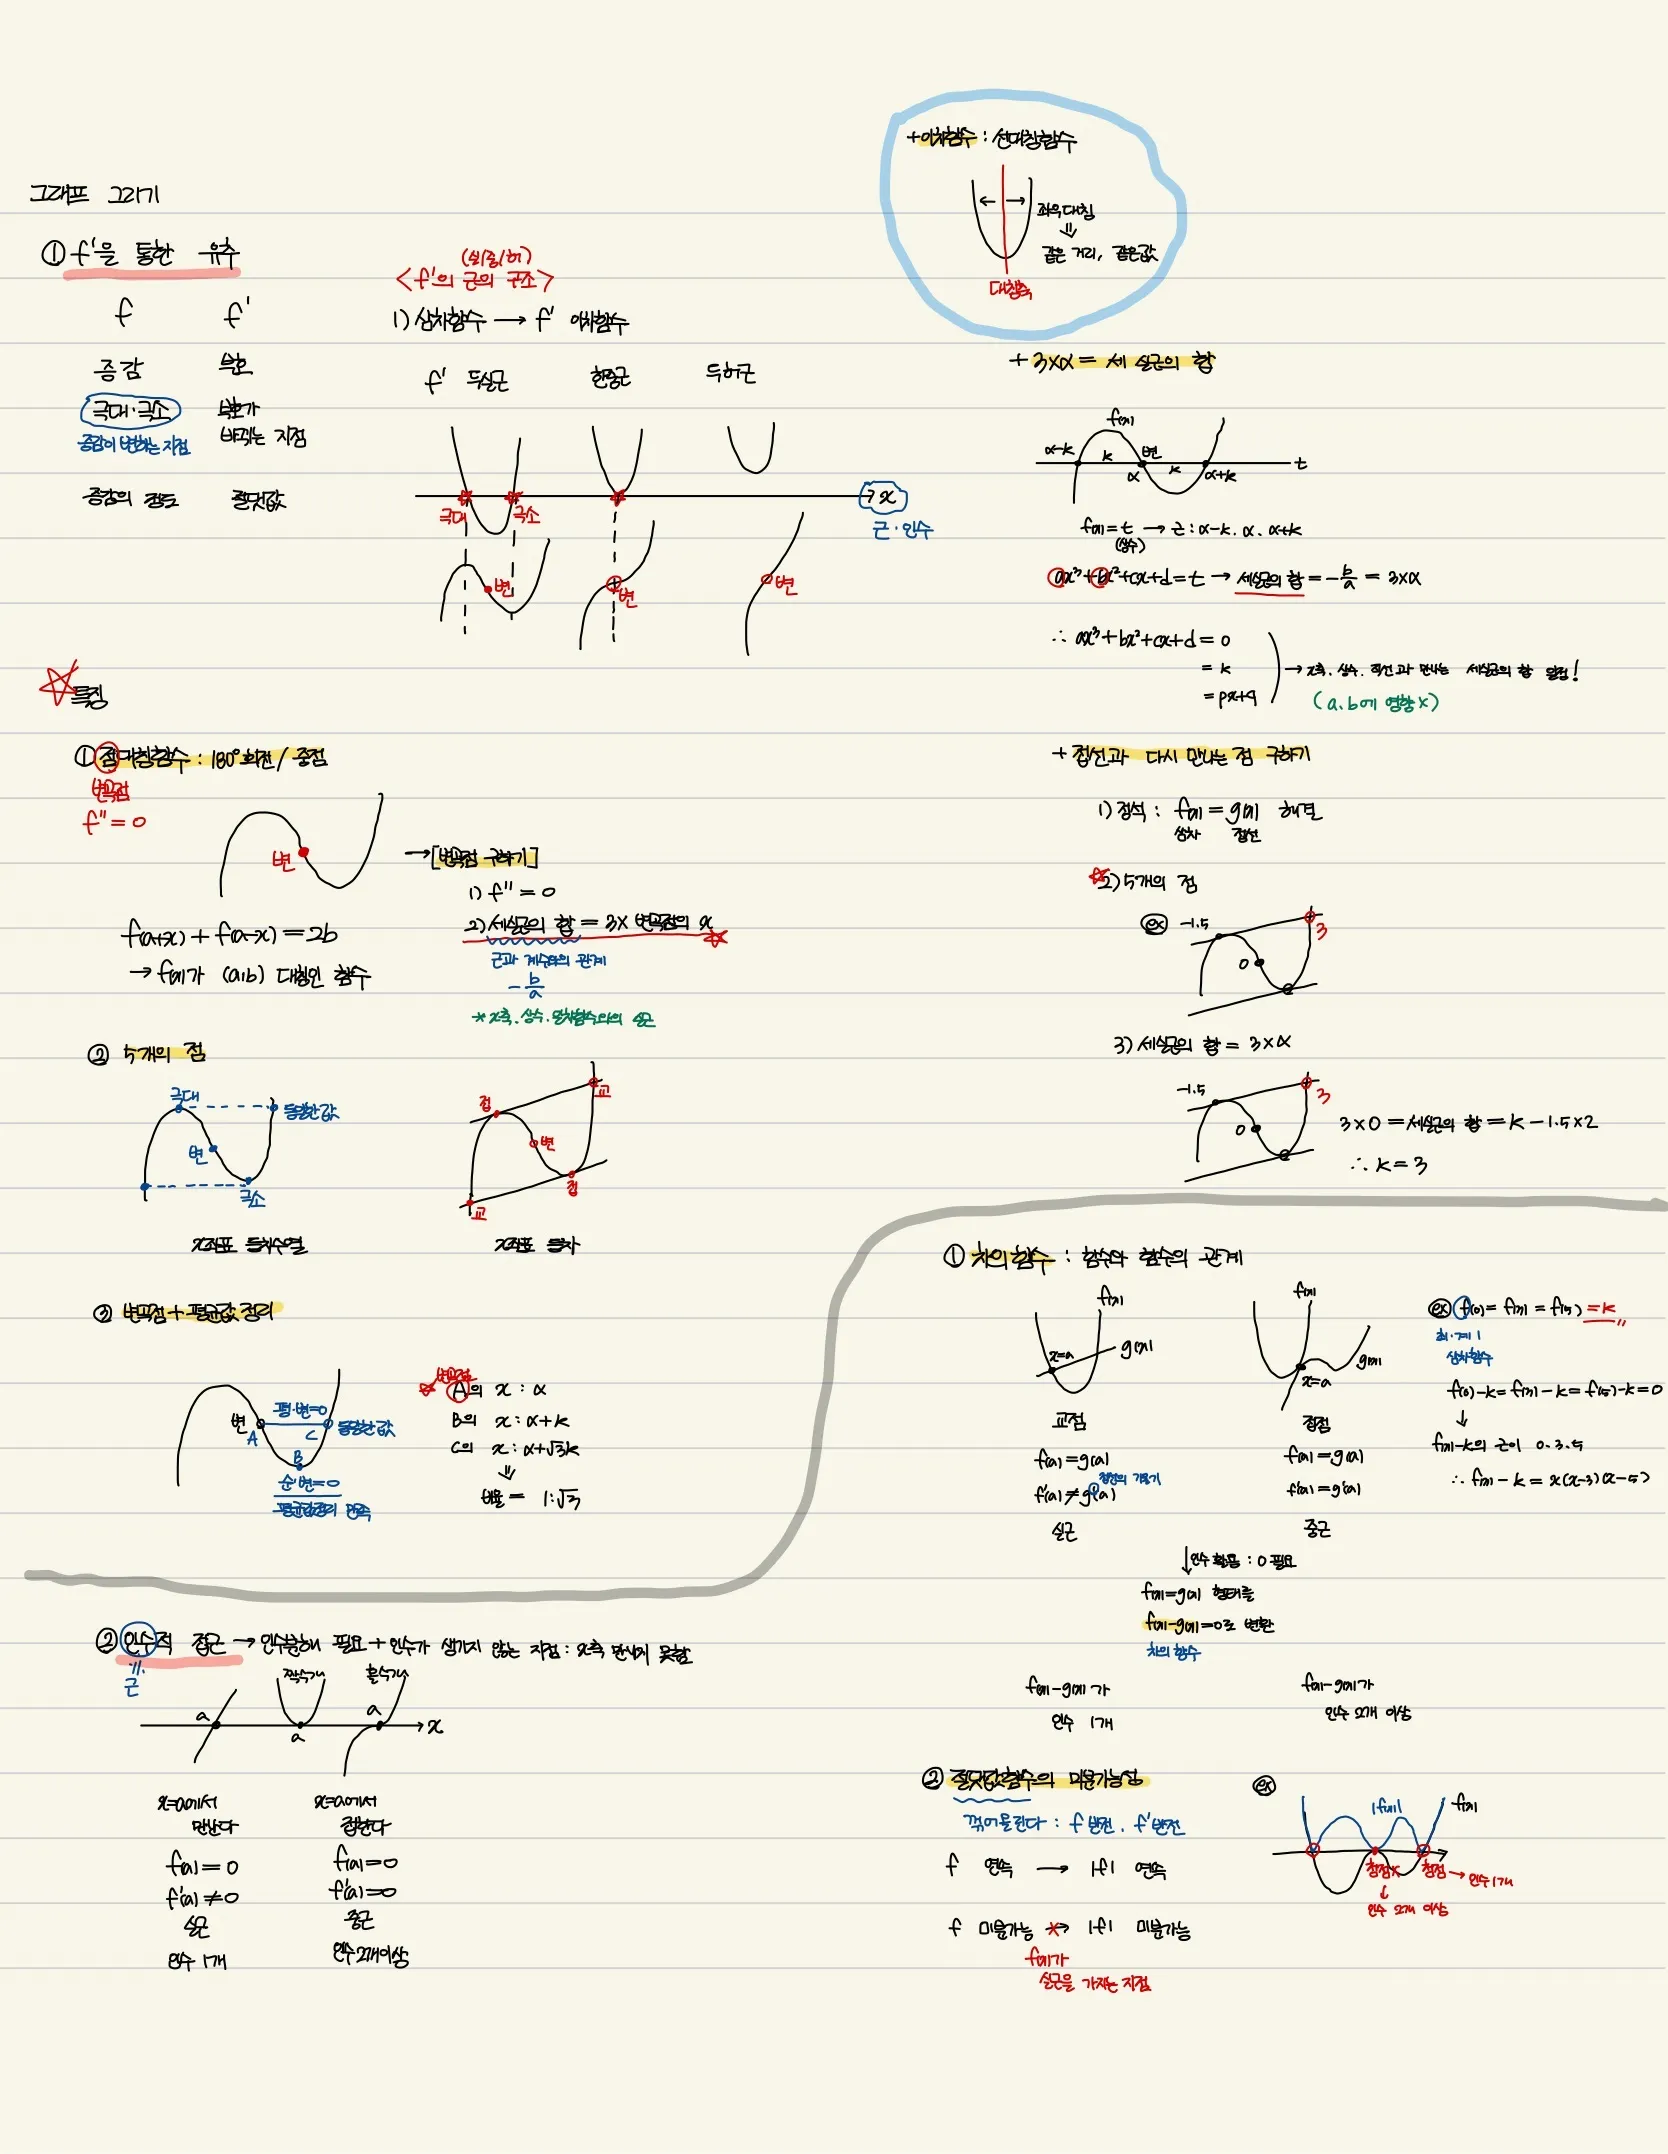 그래프 그리기
① f'을 통한 유추
f f'
증감 부호
극대·극소 부호가
증감이 변하는 지점 바뀌는 지점
증감의 정도 절댓값
(실/중/허)
<f'의 근의 구조>
1) 삼차함수 → f' 이차함수
f' 두실근 한중근 두허근
극대 극소
x
근·인수
변 변 변
☆특징
① 점대칭함수 : 180° 회전 / 중점
변곡점
f'' = 0
변
f(a+x) + f(a-x) = 2b
→ f(x)가 (a,b) 대칭인 함수
→ [변곡점 구하기]
1) f'' = 0
2) 세실근의 합 = 3× 변곡점의 x ☆
근과 계수와의 관계
- b/a
* x축, 상수, 일차함수와의 실근
② 5개의 점
극대 동일한 값
변
극소
x좌표 등차수열
접 교
변
접
교
x좌표 등차
③ 변곡점 + 평균값 정리
변 평·변=0 동일한 값
A C
B
순·변=0
평균값정리 만족
☆ 변곡점
A의 x : α
B의 x : α+k
C의 x : α+√3k
⇓
비율 = 1:√3
② 인수적 접근 → 인수분해 필요 + 인수가 생기지 않는 지점 : x축 만나지 못함
근
짝수개 홀수개
a a a x
x=a에서 x=a에서
만난다 접한다
f(a) = 0 f(a) = 0
f'(a) ≠ 0 f'(a) = 0
실근 중근
인수 1개 인수 2개 이상
+ 이차함수 : 선대칭함수
← →
좌우대칭
⇓
같은 거리, 같은 값
대칭축
+ 3×α = 세 실근의 합
f(x)
α-k k 변 t
α k α+k
f(x) = t → 근 : α-k, α, α+k
(상수)
ax³+bx²+cx+d = t → 세실근의 합 = - b/a = 3×α
∴ ax³+bx²+cx+d = 0
= k
= px+q
→ x축, 상수, 직선과 만나는 세실근의 합 일정!
(a, b에 영향 X)
+ 접선과 다시 만나는 점 구하기
1) 정석 : f(x) = g(x) 해결
삼차 접선
☆2) 5개의 점
ex -1.5 3
0
3) 세실근의 합 = 3×α
-1.5 3
0
3×0 = 세실근의 합 = k - 1.5×2
∴ k = 3
① 차의 함수 : 함수와 함수의 관계
f(x) g(x)
x=a
교점
f(a) = g(a)
f'(a) ≠ g'(a)
접선의 기울기
실근
f(x) g(x)
x=a
접점
f(a) = g(a)
f'(a) = g'(a)
중근
ex f(0) = f(3) = f(5) = k
최·계 1
삼차함수
f(0)-k = f(3)-k = f(5)-k = 0
↓
f(x)-k의 근이 0, 3, 5
∴ f(x)-k = x(x-3)(x-5)
↓ 인수 활용 : 0 필요
f(x)=g(x) 형태를
f(x)-g(x)=0로 변환
차의 함수
f(x)-g(x)가 f(x)-g(x)가
인수 1개 인수 2개 이상
② 절댓값함수의 미분가능성
꺾어올린다 : f 반전, f' 반전
f 연속 → |f| 연속
f 미분가능 → |f| 미분가능
f(x)가
실근을 가지는 지점
ex
|f(x)| f(x)
첨점X 첨점 → 인수 1개
↓
인수 2개 이상